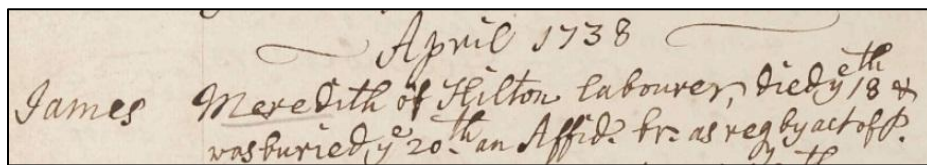 April 1738
James Meredith of Hilton labourer, died yᵉ 18ᵗʰ &
was buried, yᵉ 20.ᵗʰ an Affid.ᵗ br.ᵗ as req by act of P.